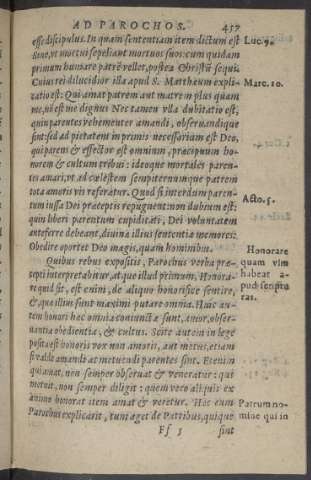 AD PAROCHOS. 457
esse discipulus. In quam sententiam item dictum est Luc. 9.
Sine, vt mortui sepeliant mortuos suos: cum quidam
primum humare patrē vellet, postea Christū sequi.
Cuius rei dilucidior illa apud S. Matthæum expli- Marc. 10.
catio est: Qui amat patrem aut matrem plùs quàm
me, nō est me dignus Nec tamen vlla dubitatio est,
quin parentes vehementer amandi, obseruandique
sint: sed ad pietatem in primis necessarium est Deo,
qui parens & effector est omnium, præcipuum ho-
norem & cultum tribui: ideoque mortales paren-
tes amari, vt ad cælestem sempiternumque patrem
tota amoris vis referatur. Quod si interdum paren-
tum iussa Dei præceptis repugnent: non dubium est: Acto. 5.
quin liberi parentum cupiditati, Dei voluntatem
anteferre debeant, diuinæ illius sententiæ memores:
Obedire oportet Deo magis, quàm hominibus.
Quibus rebus expositis, Parochus verba præ-
cepti interpretabitur, atque illud primum, Honora-
re quid sit, est enim, de aliquo honorificè sentire,
& quæ illius sunt maximi putare omnia. Huic au-
tem honori hæc omnia coniuncta sunt, amor, obser-
uantia obedientia, & cultus. Scitè autem in lege
posita est honoris vox non amoris, aut metus, etiam
si valde amandi ac metuendi parentes sint. Etenim
qui amat, non semper obseruat & veneratur: qui
metuit, non semper diligit: quem verò aliquis ex
animo honorat item amat & veretur. Hæc cum
Parochus explicarit, tum aget de Patribus, quique
Honorare
quam vim
habeat a-
pud scriptu
ras.
Patrum no-
mine qui in
Ff 5 sint